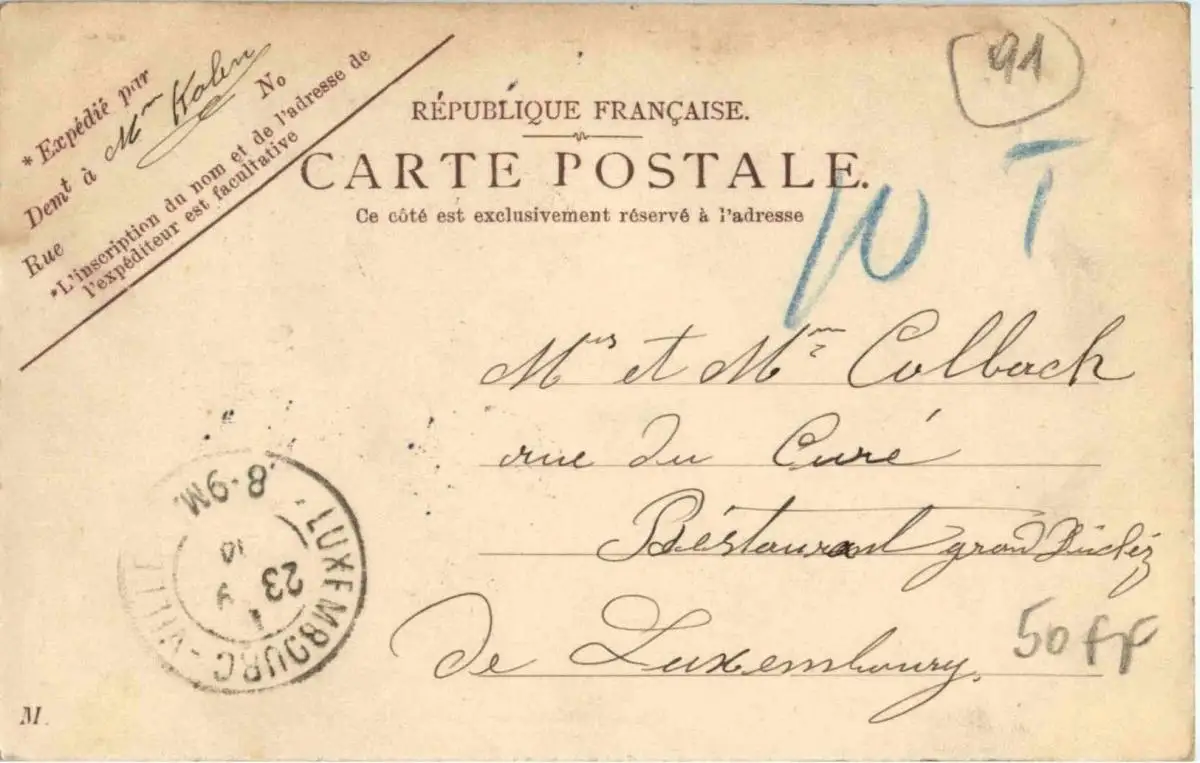 * Expédié par
Demt à Mme Kolen No
Rue
*L'inscription du nom et de l'adresse de
l'expéditeur est facultative
RÉPUBLIQUE FRANÇAISE.
CARTE POSTALE.
Ce côté est exclusivement réservé à l'adresse
91
T
10
Mrs et Mme Colbach
rue du Curé
Réstaurant grand Duché
de Luxembourg.
50 FF
LUXEMBOURG - VILLE
8-9M.
23
10
M.